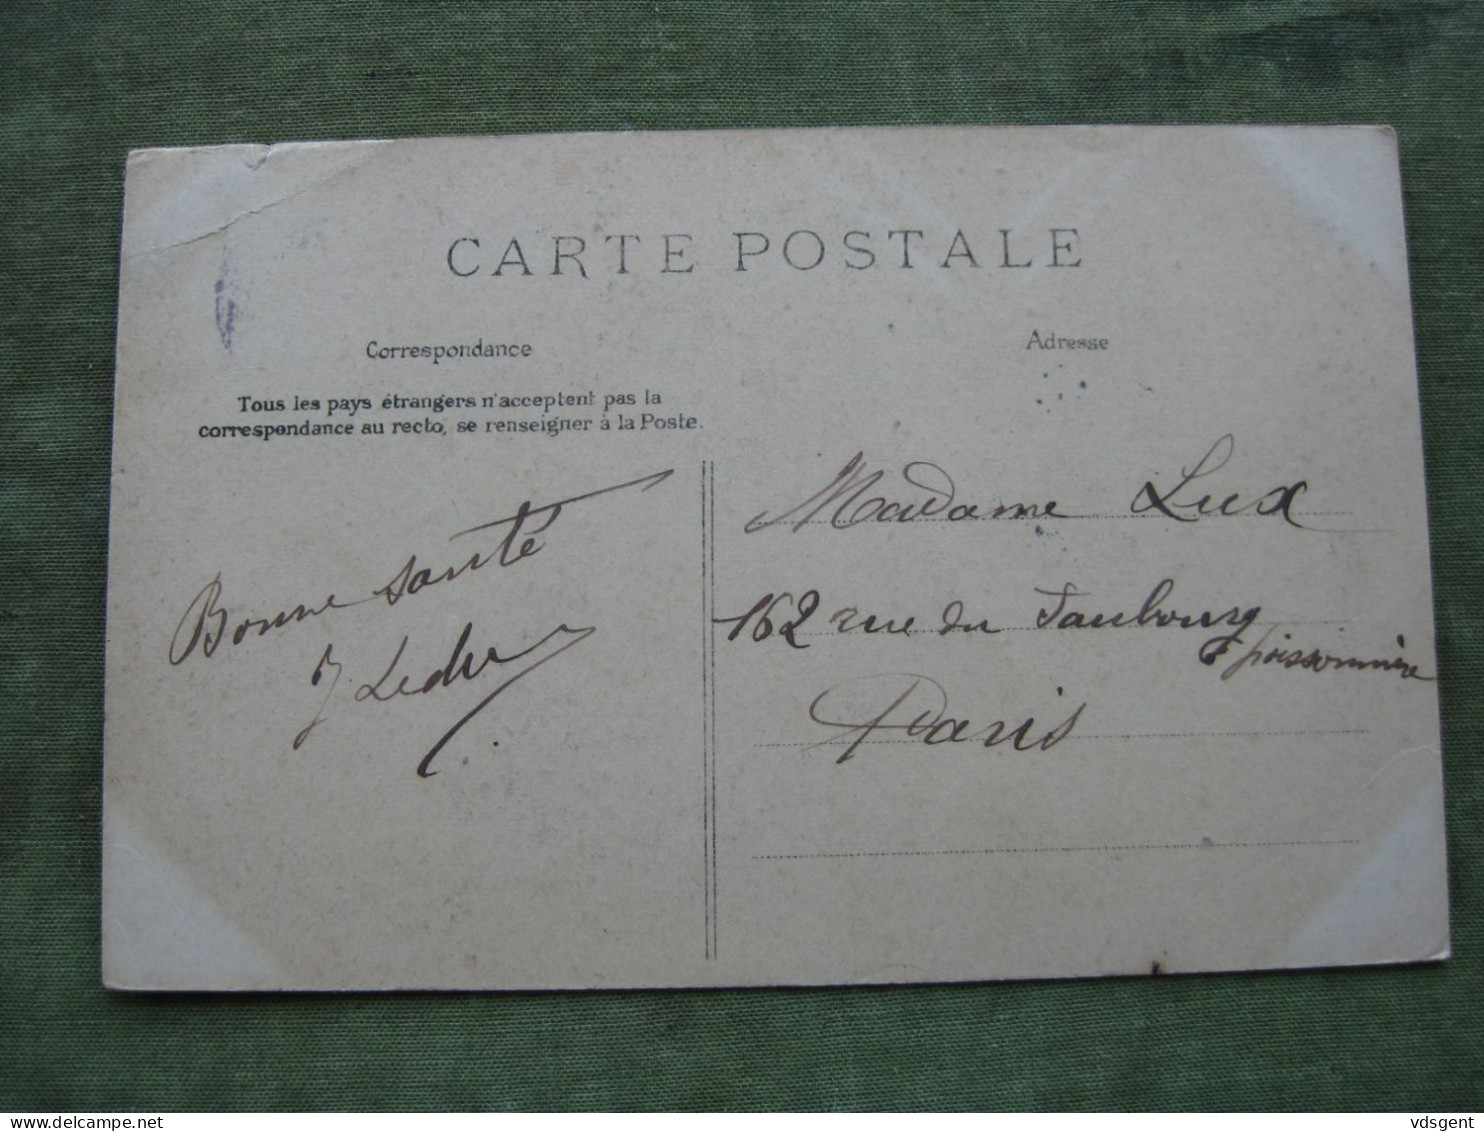 CARTE POSTALE
Correspondance
Adresse
Tous les pays étrangers n'acceptent pas la
correspondance au recto, se renseigner à la Poste.
Bonne santé
J. Ledu
Madame Lux
162 rue du Faubourg
poissonnière
Paris
delcampe.net
vdsgent